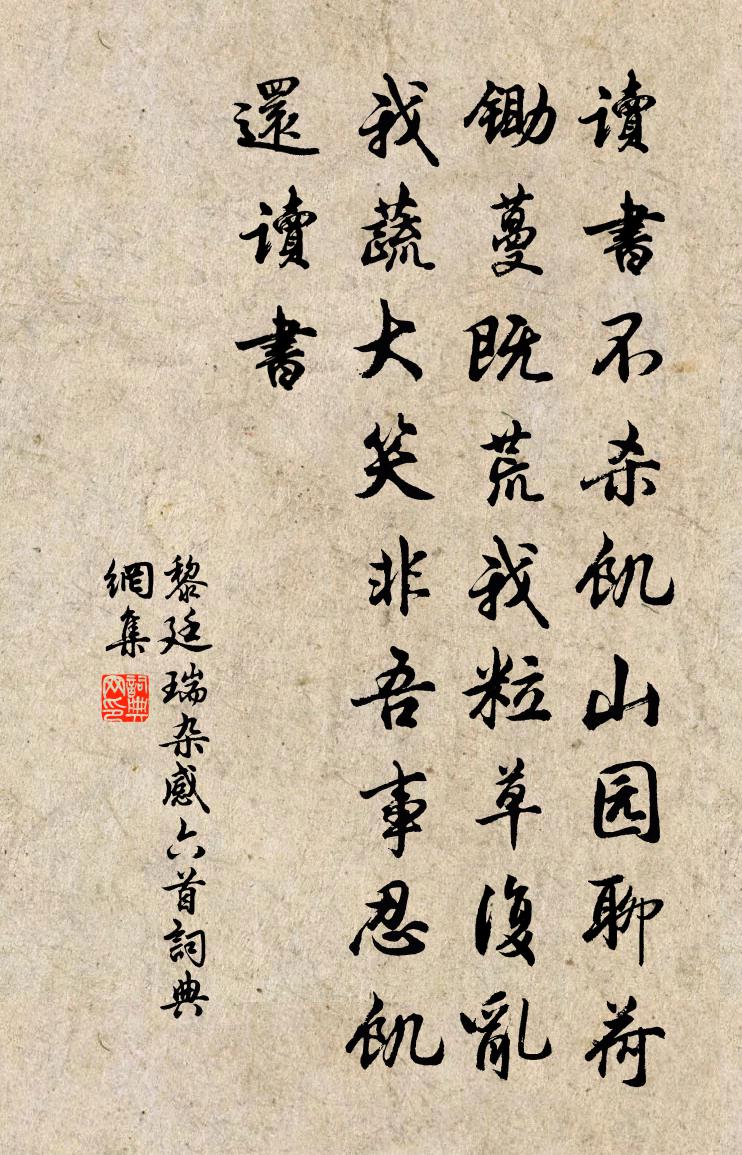 讀書不杀飢山园聊荷
鋤蔓既荒我粒草復亂
我蔬大笑非吾事忍飢
還讀書
黎廷瑞杂感六首詞典
網集
詞典网印